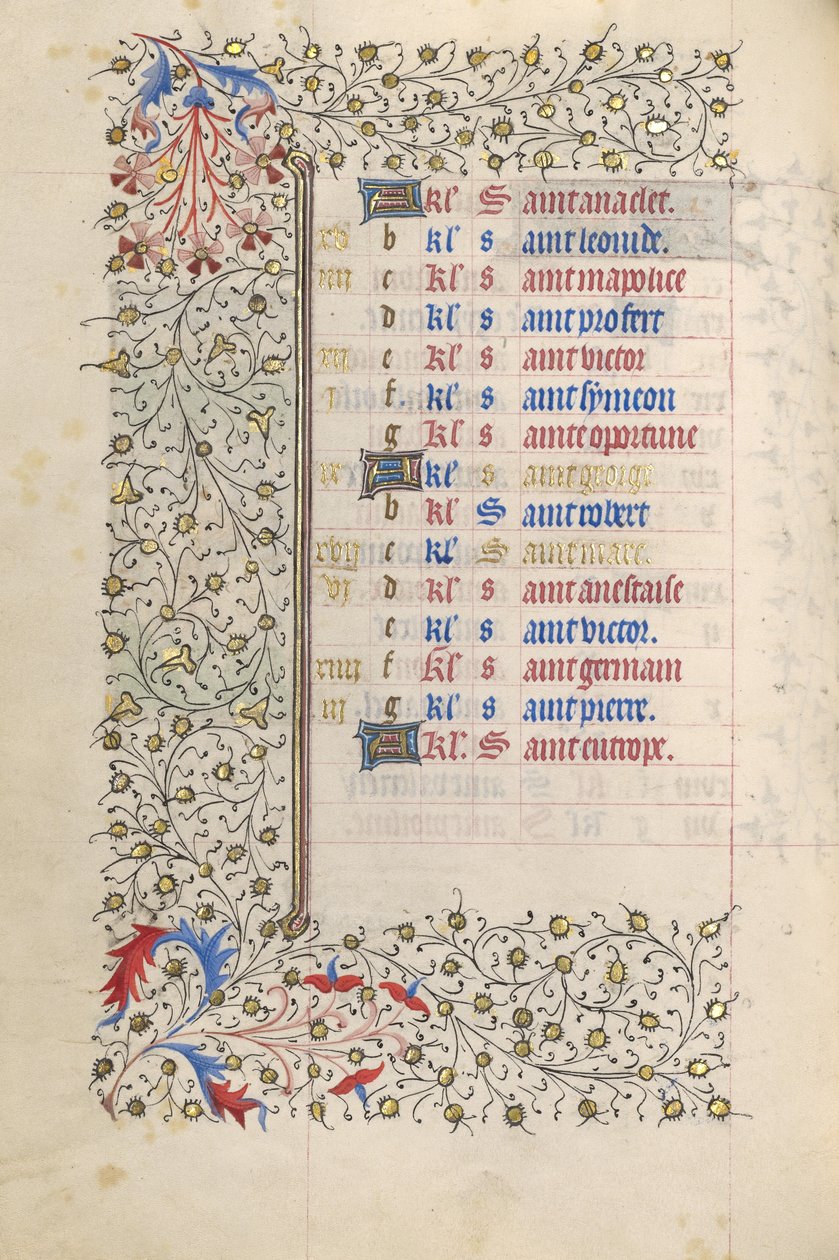 A kl' Saint anaclet.
xv b kl' saint leonide.
iiij c kl' saint mapolice
d kl' saint profert
xij e kl' saint victor
j f. kl' saint symeon
g kl' sainte oportune
ix A kl' saint george
b kl' Saint robert
xvij c kl' Saint marc.
vj d kl' saint anestaise
e kl' saint victor.
xiiij f kl' saint germain
iij g kl' saint pierre.
A kl'. Saint eutrope.